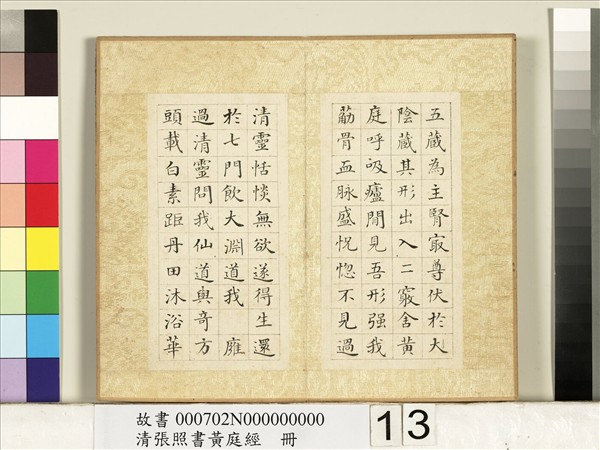 五藏為主腎冣尊伏於大
陰藏其形出入二竅舍黃
庭呼吸廬間見吾形强我
筋骨血脉盛怳惚不見過
清靈恬惔無欲遂得生還
於七門飲大淵道我 廱
過清靈問我仙道與奇方
頭載白素距丹田沐浴華
故書 000702N000000000
清張照書黃庭經 冊
13